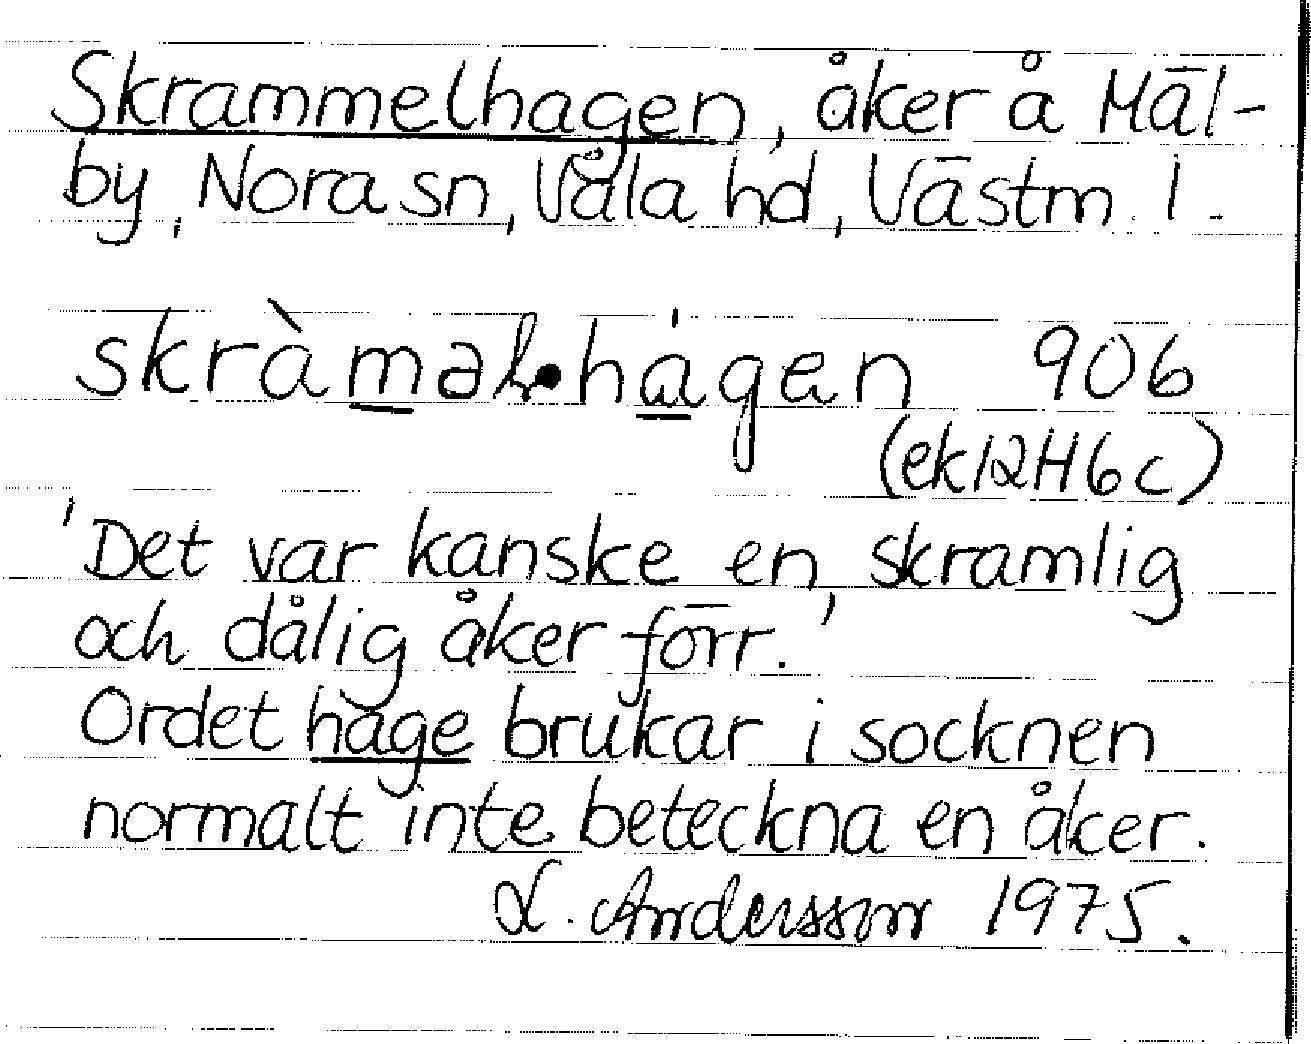 Skrammelhagen, åker å Mäl-
by, Nora sn, Våla hd, Västm. l.
skràmaɫ•hágen 906
(ek 12H6c)
'Det var kanske en skramlig
och dålig åker förr.'
Ordet hage brukar i socknen
normalt inte beteckna en åker.
L. Andersson 1975.